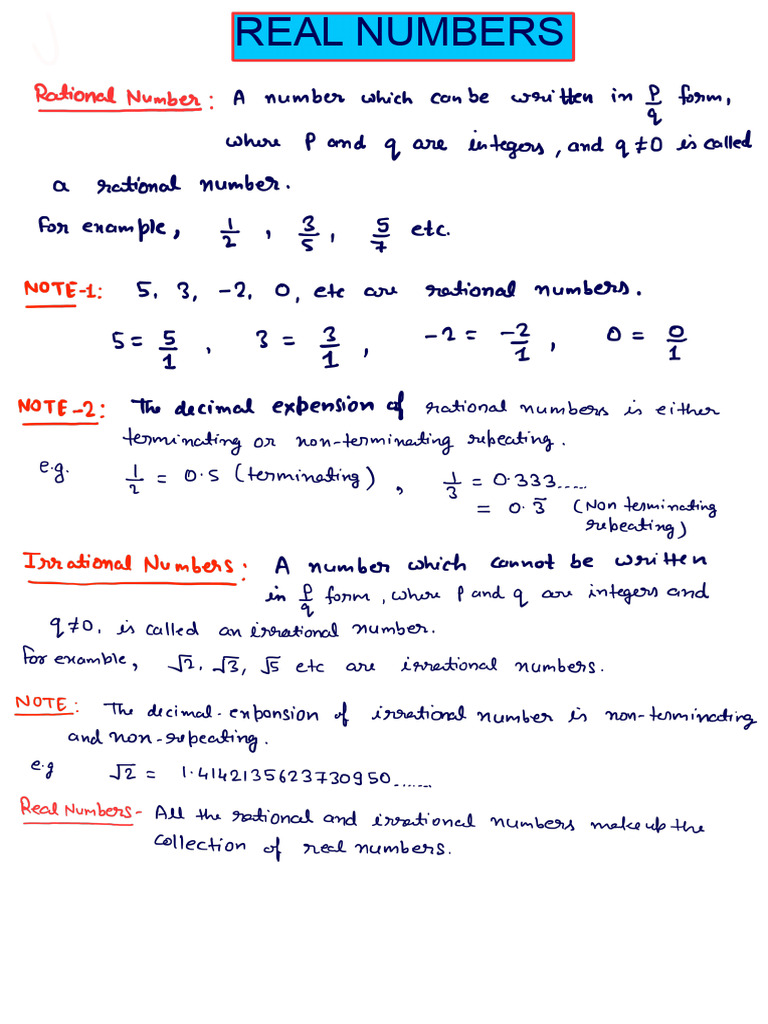 REAL NUMBERS
Rational Number: A number which can be written in p/q form,
where p and q are integers, and q≠0 is called
a rational number.
For example, 1/2, 3/5, 5/7 etc.
NOTE-1: 5, 3, -2, 0, etc are rational numbers.
5 = 5/1, 3 = 3/1, -2 = -2/1, 0 = 0/1
NOTE-2: The decimal expension of rational numbers is either
terminating or non-terminating repeating.
e.g. 1/2 = 0.5 (terminating), 1/3 = 0.333.....
= 0.3̅ (Non terminating
repeating)
Irrational Numbers: A number which cannot be written
in p/q form, where p and q are integers and
q≠0, is called an irrational number.
For example, √2, √3, √5 etc are irrational numbers.
NOTE: The decimal-expansion of irrational number is non-terminating
and non-repeating.
e.g √2 = 1.4142135623730950.......
Real Numbers- All the rational and irrational numbers make up the
collection of real numbers.